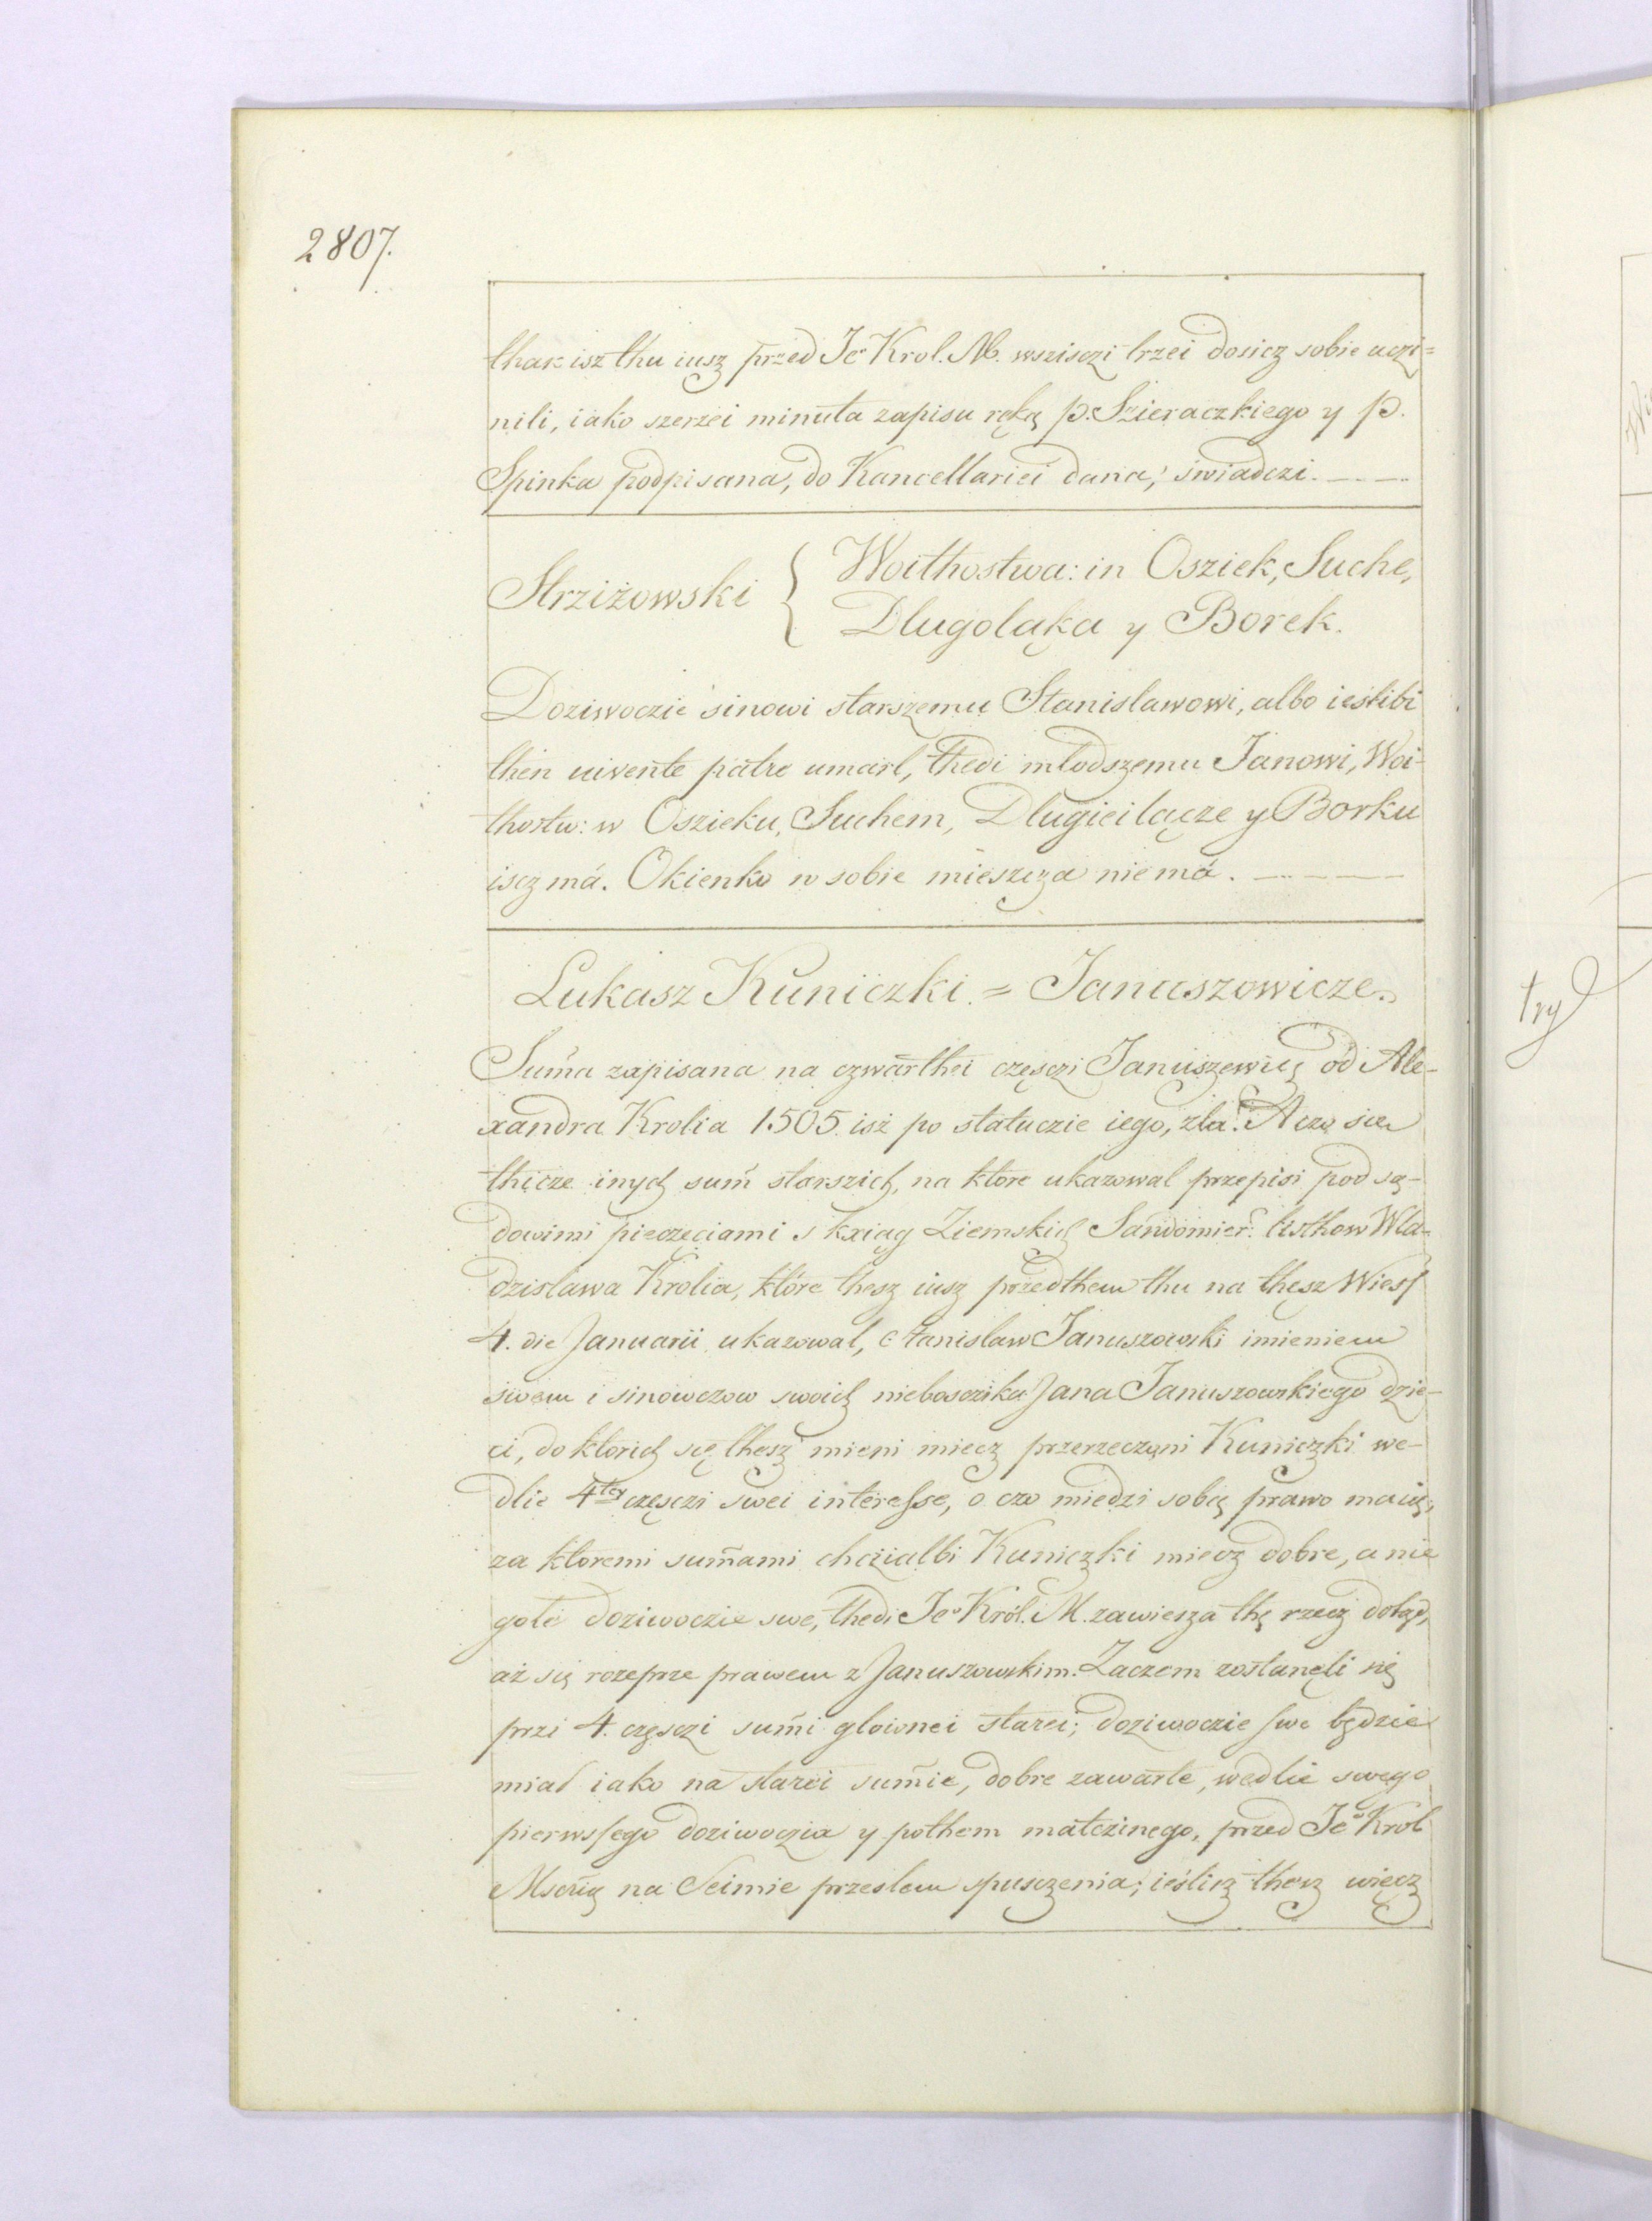 2807.
thak isz thu iusz przed Jeº Krol. M. wszisczi trzei dosicz sobie uczi=
nili, iako szerzei minuta zapisu ręką p. Szieraczkiego y p.
Spinka podpisana, do Kancellariei dana, świadczi.
Strziżowski { Woithostwa: in Osziek, Suche,
Dlugoląka y Borek.
Doziwoczie sinowi starszemu Stanislawowi, albo iesłibi
then uivente patre umarl, thedi mlodszemu Janowi, Woi-
thostw: w Oszieku, Suchem, Dlugiei lącze y Borku
iscz má. Okienko w sobie mieszcza nie má.
Lukasz Kuniczki = Januszowicze.
Suma zapisana na czwarthei częsczi Januszewicz od Ale-
xandra Krolia 1505. isz po statuczie iego, zla. A czo się
thicze inych sum starszich, na ktore ukazowal przepisi pod są-
dowimi pieczęciami s kxiąg Ziemskich Sandomier: listhow Wla-
dzislawa Krolia, które thesz iusz przedthem thu na thęsz Wiesſ
4. die Januarii ukazowal, Stanislaw Januszowski imieniem
swem i sinowczow swoich nieboszczika Jana Januszowskiego dzie-
ci, do ktorich się thesz mieni miecz przerzeczoni Kuniczki we-
dlie 4tey częsczi swei intereſse, o czo miedzi sobą prawo maią,
za ktoremi sumami chczialbi Kuniczki miecz dobre, a nie
gołe doziwoczie swe, thedi Jeº Król. M. zawiesza thę rzecz dotąd,
aż się rozeprze prawem z Januszowskim. Zaczem zostanęli się
przi 4. częsczi sumi glownei starei; doziwoczie ſwe będzie
miał iako na starei sumie, dobre zawarte, wedlie swego
pierwsſego doziwoczia y pothem matczinego, przed Jeº Krol
Msczią na Seimie przeslem spusczenia; ieślisz thesz więcz
try